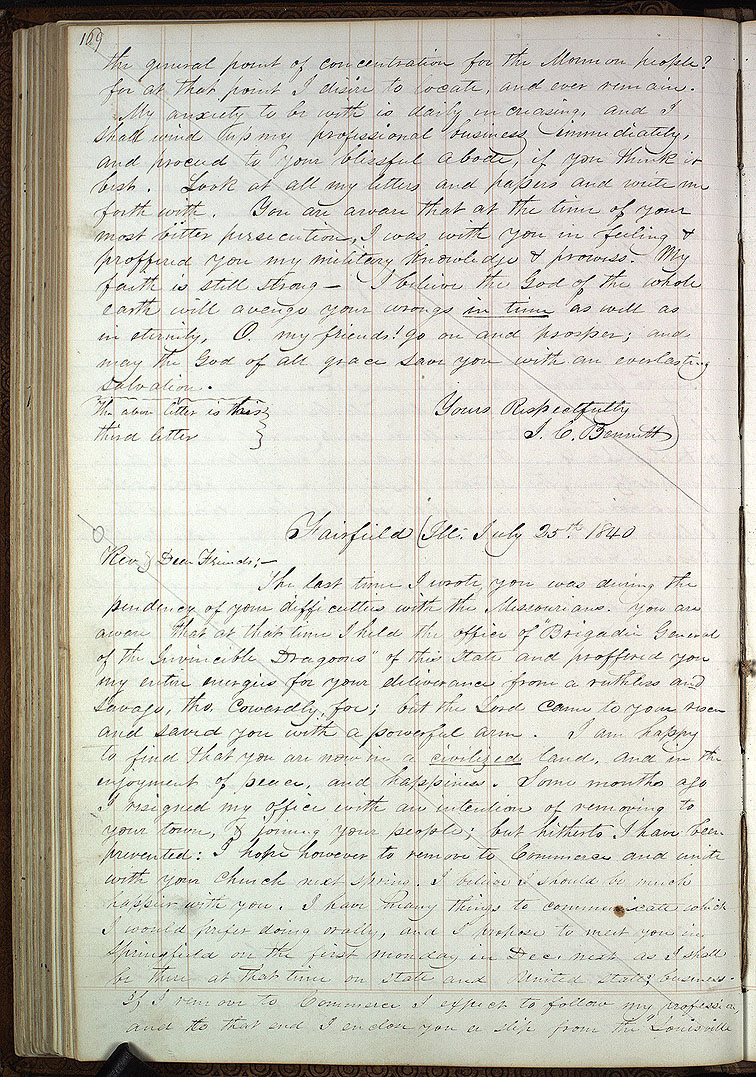 169
the general point of concentration for the Mormon people?
for at that point I desire to locate, and ever remain.
My anxiety to be with is daily increasing, and I
shall wind up my professional business immediately,
and proceed to your blissful abode, if you think it
best. Look at all my letters and papers and write me
forth with. You are aware that at the time of your
most bitter persecution, I was with you in feeling &
proffered you my military knowledge & prowess. My
faith is still strong— I believe the God of the whole
earth will avenge your wrongs in time as well as
in eternity, O. my friends! go on and prosper; and
may the God of all grace save you with an everlasting
salvation.
Yours Respectfully
The above letter is this
third letter
J. C. Bennett
Fairfield Ill: July 25th 1840
Rev & Dear Friends;—
The last time I wrote you was during the
pendency of your difficulties with the Missourians. You are
aware that at that time I held the office of "Brigadier General
of the Invincible Dragoons" of this State and proffered you
my entire energies for your deliverance from a ruthless and
savage, tho. cowardly, foe; but the Lord came to your
and saved you with a powerful arm. I am happy
to find that you are now in a civilized land, and in the
enjoyment of peace, and happiness. Some months ago
I resigned my office with an intention of removing to
your town, & joining your people; but hitherto I have been
prevented: I hope however to remove to Commerce and unite
with your Church next spring. I believe I should be much
happier with you. I have many things to communicate which
I would prefer doing orally, and I propose to meet you in
Springfield on the first monday in Dec. next as I shall
be there at that time on State and United States business.
If I remove to Commerce I expect to follow my profession,
and to that end I enclose you a slip from the "Louisville